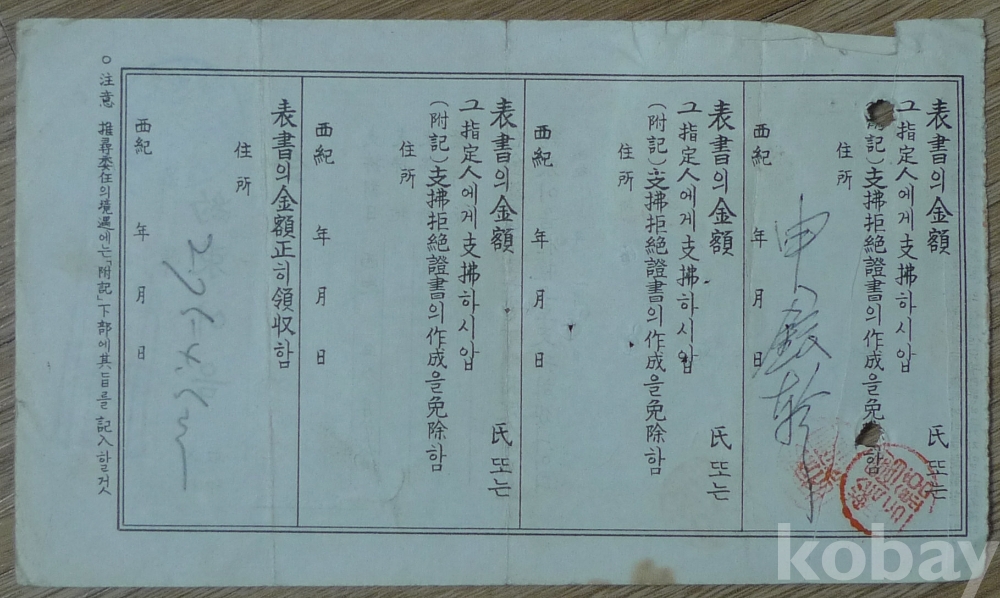 表書의金額 氏또는
그指定人에게支拂하시압
(附記)支拂拒絶證書의作成을免除함
住所
西紀 年 月 日
申
表書의金額 氏또는
그指定人에게支拂하시압
(附記)支拂拒絶證書의作成을免除함
住所
西紀 年 月 日
表書의金額 氏또는
그指定人에게支拂하시압
(附記)支拂拒絶證書의作成을免除함
住所
西紀 年 月 日
表書의金額正히領収함
住所
西紀 年 月 日
○注意 推尋委任의境遇에는「附記」下部에其旨를記入할것
kobay